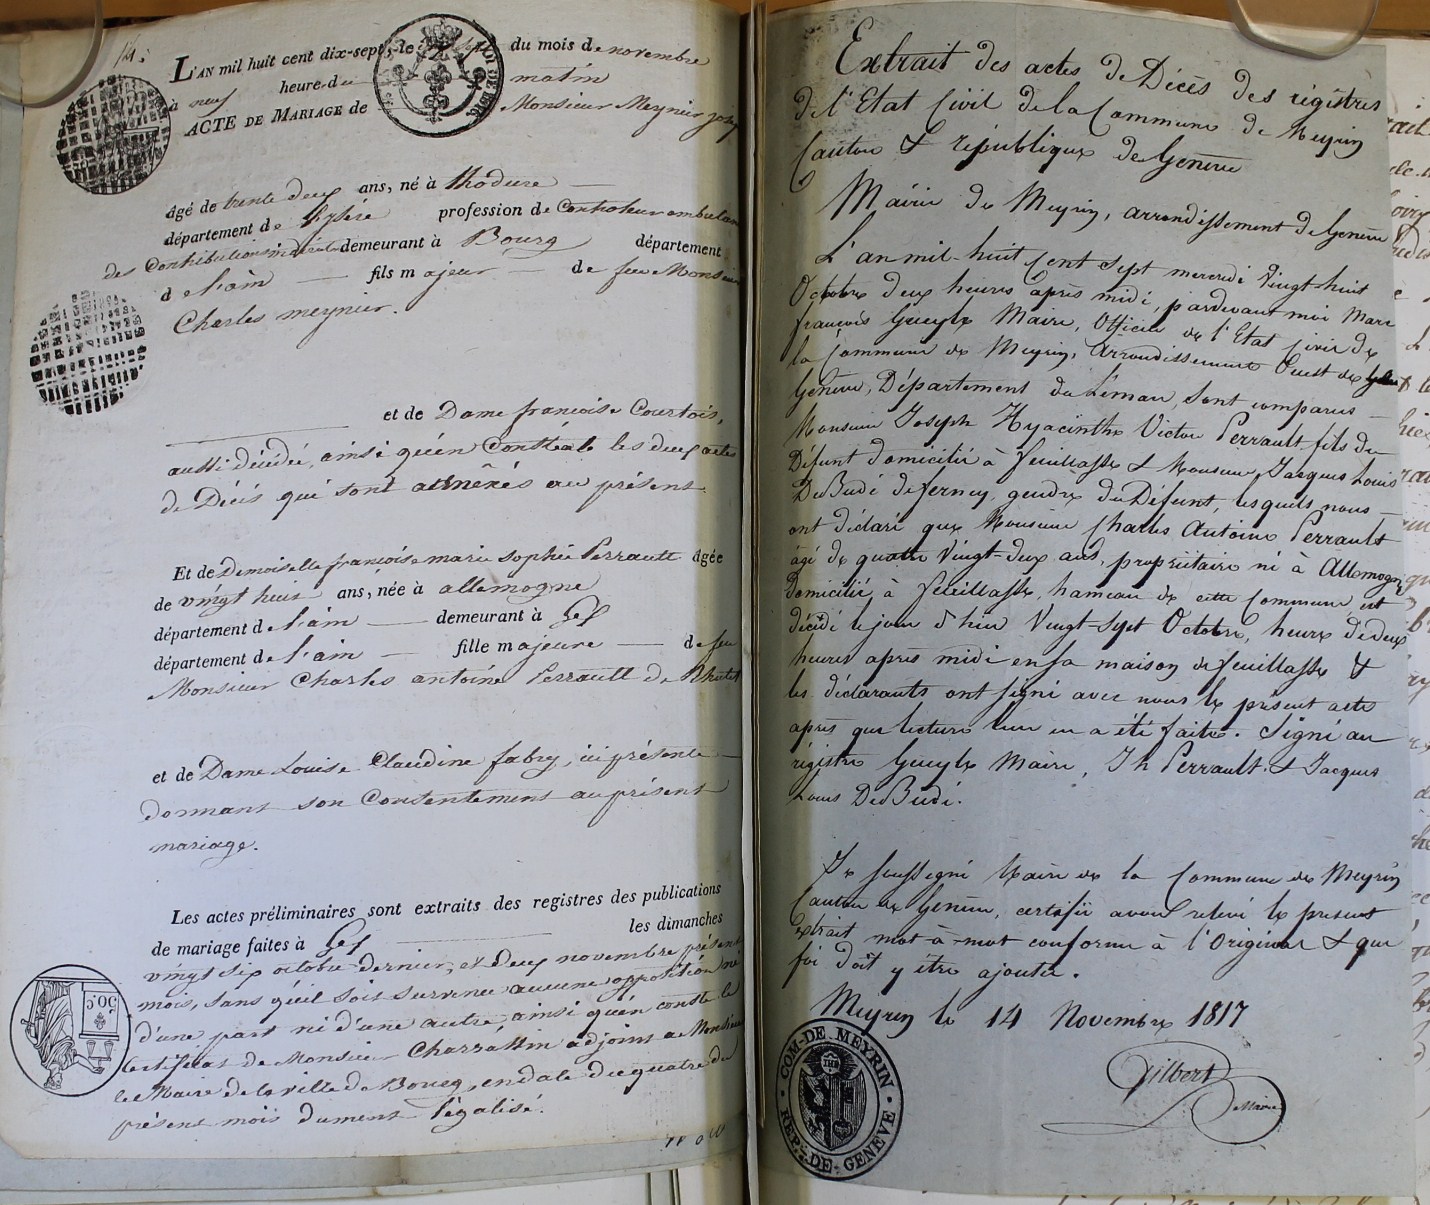 L'AN mil huit cent dix-sept, le du mois de novembre
à neuf heure du matin
ACTE DE MARIAGE de Monsieur Meynier
âgé de trente deux ans, né à Thodure
département de l'Isère profession de Controleur ambulant
des Contributions demeurant à Bourg département
d e l'ain fils majeur de feu Monsieur
Charles meynier.
et de Dame françoise Courtois,
aussi décédée, ainsi qu'en Constate les deux actes
de Décès qui sont annèxés au présent
Et de Demoiselle françoise marie sophie Perrault âgée
de vingt huit ans, née à allemogne
département d e l'ain demeurant à Gex
département de l'ain fille majeure de feu
Monsieur Charles antoine Perrault de
et de Dame Louise Claudine fabry, ici présente
donnant son Consentement au présent
mariage.
Les actes préliminaires sont extraits des registres des publications
de mariage faites à Gex les dimanches
vingt six octobre dernier, et deux novembre présent
mois, sans qu'il soit survenu aucune opposition ni
d'une part ni d'une autre, ainsi qu'en conste le
Certificat de Monsieur adjoint a Monsieur
le Maire de la ville de Bourg, en date du quatre du
présent mois dument légalisé.
50.C
Extrait des actes de Décès des régistres
de l'Etat Civil de la Commune de Meyrin
Canton & république de Genève
Mairie de Meyrin, arrondissement de Genève
L'an mil-huit Cent sept mercredi Vingt-huit
Octobre deux heures après midi, pardevant moi Marc
françois Maire, Officier de l'Etat Civil de
la Commune de Meyrin, Arrondissement Ouest de
Genève, Département du Léman, sont comparus
Monsieur Joseph Hyacinthe Victor Perrault fils du
Défunt domicilié à feuillasse & Monsieur Jacques Louis
DeBudé de ferney, gendre du Défunt, lesquels nous
ont déclaré que Monsieur Charles Antoine Perrault
âgé de quatre Vingt-deux ans, propriétaire né à Allemogne
Domicilié à feuillasse, hameau de cette Commune est
décédé le jour d'hier Vingt-Sept Octobre, heure de deux
heures après midi en sa maison de feuillasse &
les déclarants ont signé avec nous le présent acte
après que lecture leur en a été faite. Signé au
régistre Maire, Jh Perrault & Jacques
Louis DeBudé.
Je soussigné Maire de la Commune de Meyrin
Canton de Genève, certifie avoir relevé le présent
extrait mot-à-mot conforme à l'Original & que
foi doit y être ajoutée.
Meyrin le 14 Novembre 1817
Gilbert
Maire
COM. DE MEYRIN
REP. DE GENEVE